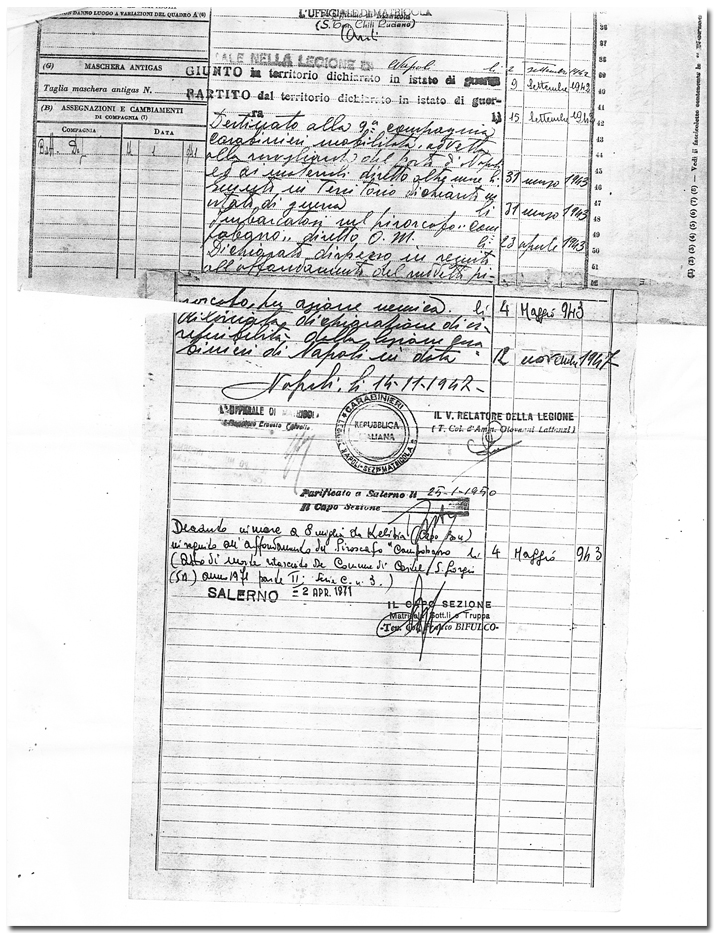 DANNO LUOGO A VARIAZIONI DEL QUADRO A (6)
L'UFFICIALE DI MATRICOLA
(G) MASCHERA ANTIGAS
Taglia maschera antigas N.
(B) ASSEGNAZIONI E CAMBIAMENTI
DI COMPAGNIA (7)
COMPAGNIA
DATA
ALE NELLA LEGIONE DI Napoli li 2 settembre 1942
GIUNTO in territorio dichiarato in istato di guerra 9 settembre 1942
PARTITO dal territorio dichiarato in istato di guer-
ra li 15 settembre 1942
Destinato alla 9ª compagnia
carabinieri mobilitata addetta
alla del porto di Napoli
ed ai materiali diretto oltre mare li 31 marzo 1943
in Territorio dichiarato in
istato di guerra li 31 marzo 1943
Imbarcatosi sul piroscafo "Cam
pobasso" diretto O. M. li 23 aprile 1943
Dichiarato disperso in seguito
all'affondamento del suddetto pi-
roscafo per azione nemica. li 4 Maggio 943
Rilasciata dichiarazione di ir
reperibilità dalla legione cara
binieri di Napoli in data 12 novembre 1947
Napoli, li 14-11-1947-
L'UFFICIALE DI MATRICOLA
CARABINIERI
REPUBBLICA
ITALIANA
NAPOLI - SEZ. MATRICOLA
IL V. RELATORE DELLA LEGIONE
(T. Col. d'Amm. Giovanni Lattanzi)
Parificato a Salerno li 25-1-1950
Il Capo Sezione
Deceduto in mare a 8 miglia da Kelibia (Capo Bon)
in seguito all'affondamento del Piroscafo "Campobasso" li 4 Maggio 943
(Atto di morte rilasciato dal Comune di Castel S. Giorgio
(SA) anno 1971 parte II; Serie C. n. 3.)
SALERNO = 2 APR. 1971
IL CAPO SEZIONE
Matricola Sott.li e Truppa
BIFULCO
36
38
39
40
41
42
43
44
45
46
47
48
49
50
51
52
(2) (3) (4) (5) (6) (7) (8) — Vedi il fascicoletto contenente le « Norme